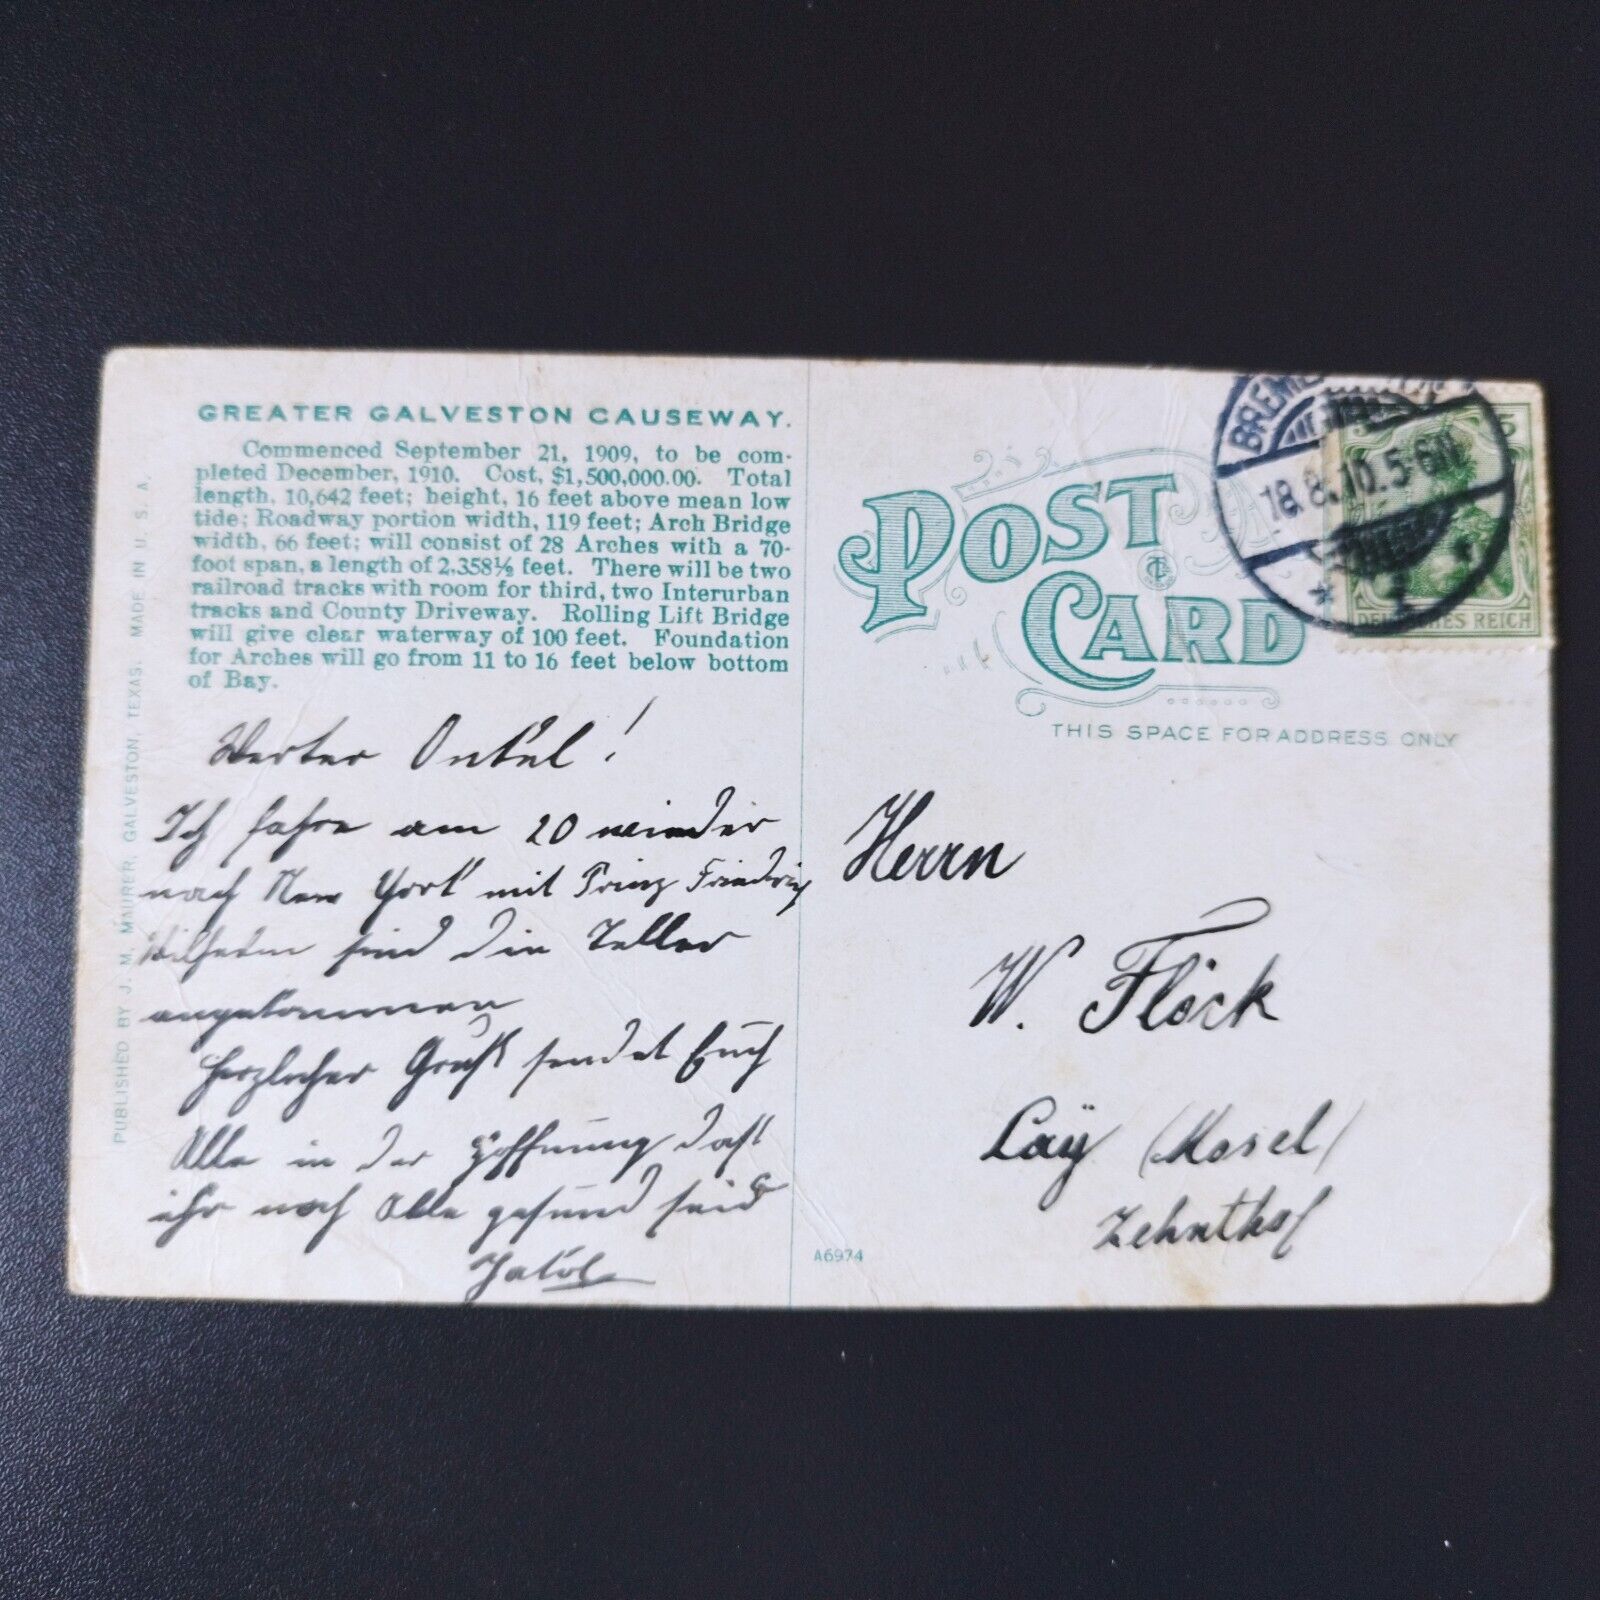 GREATER GALVESTON CAUSEWAY.
Commenced September 21, 1909, to be com-
pleted December, 1910. Cost, $1,500,000.00. Total
length, 10,642 feet; height, 16 feet above mean low
tide; Roadway portion width, 119 feet; Arch Bridge
width, 66 feet; will consist of 28 Arches with a 70-
foot span, a length of 2,358½ feet. There will be two
railroad tracks with room for third, two Interurban
tracks and County Driveway. Rolling Lift Bridge
will give clear waterway of 100 feet. Foundation
for Arches will go from 11 to 16 feet below bottom
of Bay.
PUBLISHED BY J. M. MAURER, GALVESTON, TEXAS. MADE IN U. S. A.
Werter Onkel!
Ich fahre am 20 wieder
nach New York mit Prinz Friedrich
Wilhelm sind die Teller
angekommen
Herzlicher Gruß sendet Euch
Alle in der Hoffnung daß
ihr noch Alle gesund seid
Jakob
A6974
POST CARD
THIS SPACE FOR ADDRESS ONLY
BREMEN
18.8.10.5-6N
* 1 *
5
DEUTSCHES REICH
Herrn
W. Flöck
Lay (Mosel)
Zehnthof